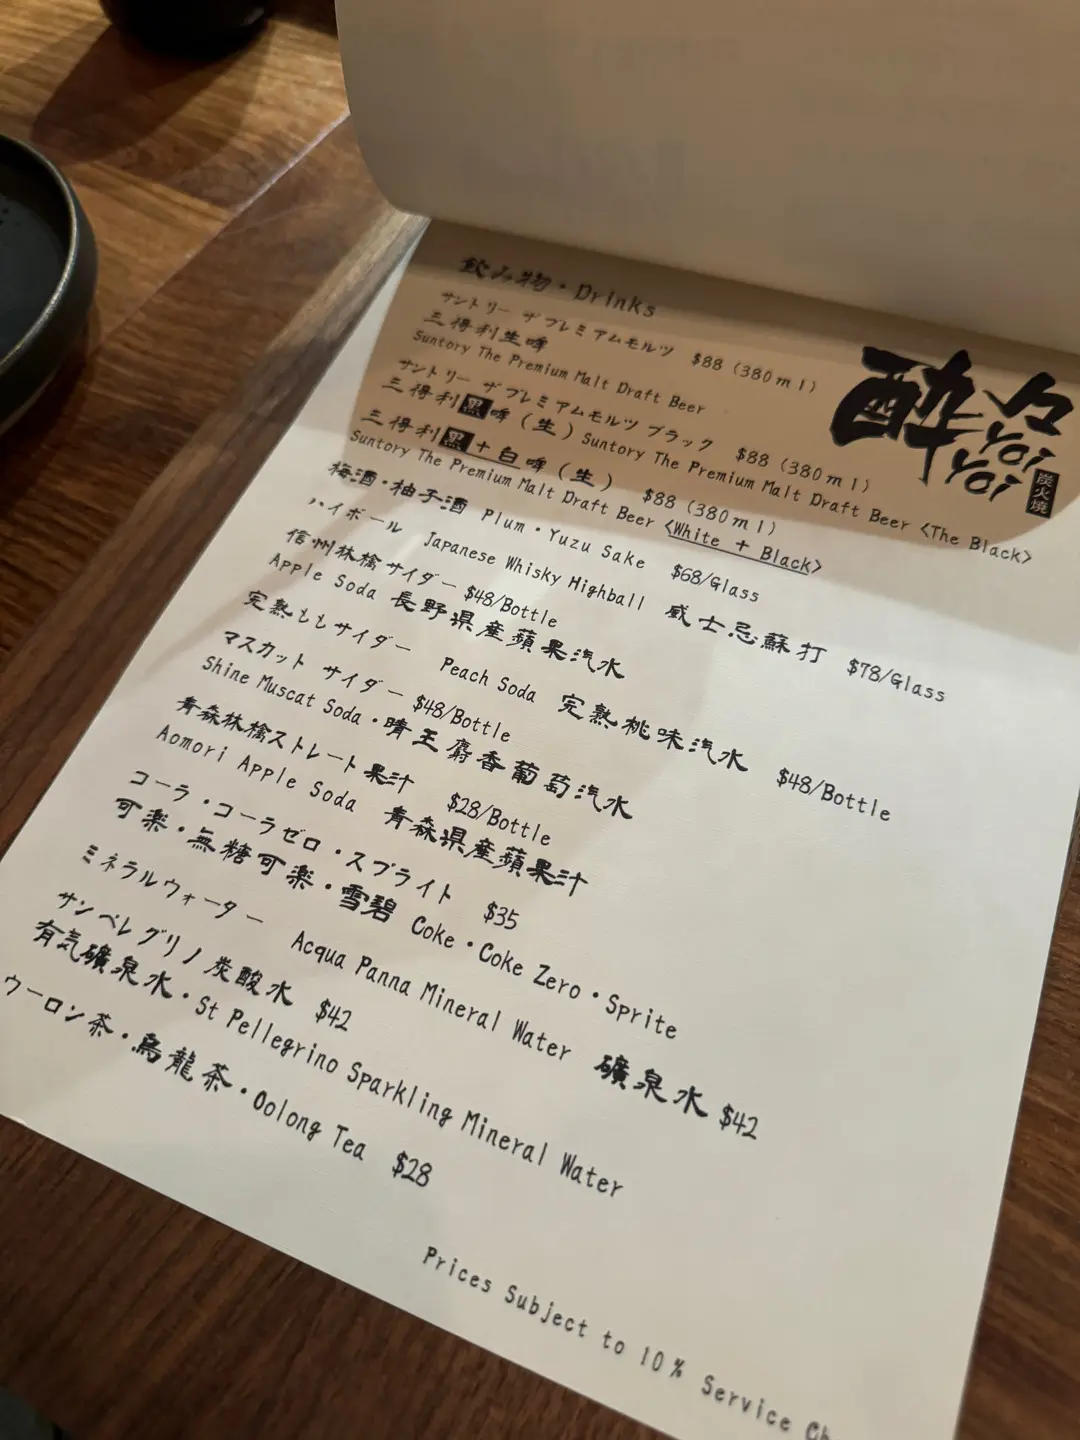 飲み物・Drinks
サントリー ザ プレミアムモルツ $88 (380ml)
三得利生啤
Suntory The Premium Malt Draft Beer
サントリー ザ プレミアムモルツ ブラック $88 (380ml)
三得利黒啤(生) Suntory The Premium Malt Draft Beer <The Black>
三得利黒+白啤(生) $88 (380ml)
Suntory The Premium Malt Draft Beer <White + Black>
梅酒・柚子酒 Plum・Yuzu Sake $68/Glass
ハイボール Japanese Whisky Highball 威士忌蘇打 $78/Glass
信州林檎サイダー $48/Bottle
Apple Soda 長野県産蘋果汽水
完熟ももサイダー Peach Soda 完熟桃味汽水 $48/Bottle
マスカット サイダー $48/Bottle
Shine Muscat Soda・晴王麝香葡萄汽水
青森林檎ストレート果汁 $28/Bottle
Aomori Apple Soda 青森県産蘋果汁
コーラ・コーラゼロ・スプライト $35
可楽・無糖可楽・雪碧 Coke・Coke Zero・Sprite
ミネラルウォーター Acqua Panna Mineral Water 礦泉水 $42
サンペレグリノ炭酸水 $42
有気礦泉水・St Pellegrino Sparkling Mineral Water
ウーロン茶・烏龍茶・Oolong Tea $28
Prices Subject to 10% Service Ch
酔々
Yoi
Yoi
炭火焼